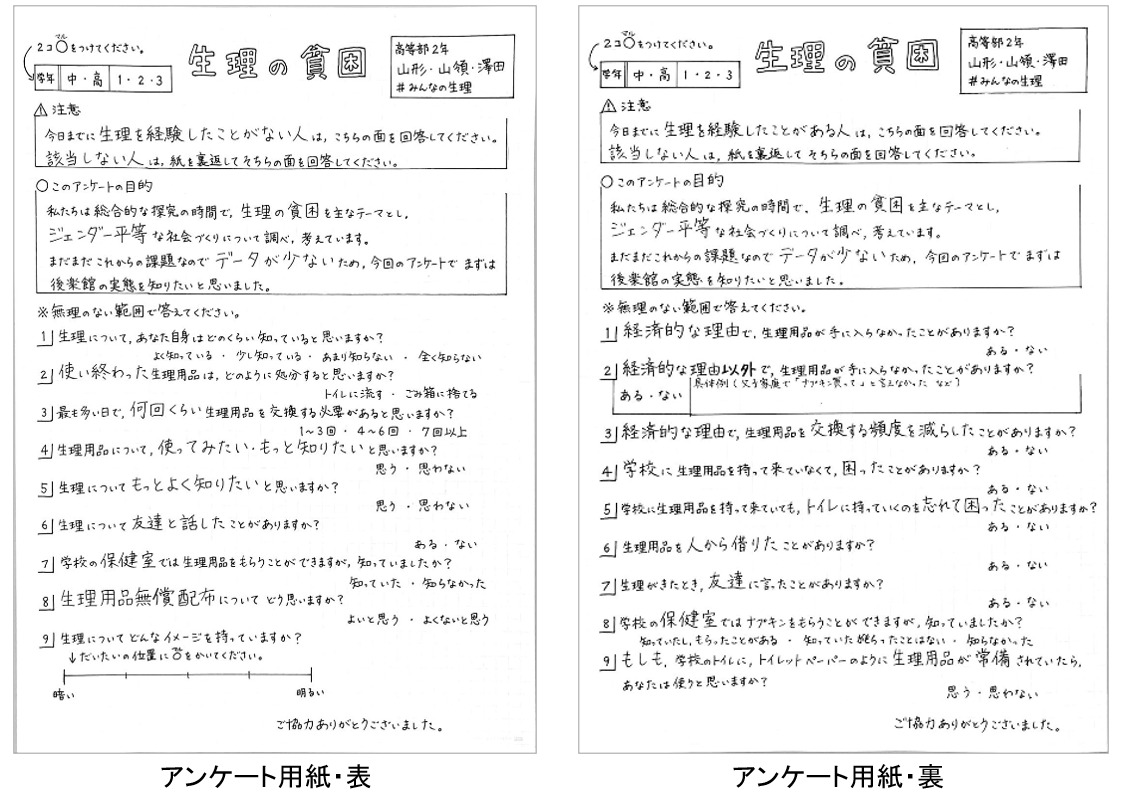 2コ○をつけてください。
マル
生理の貧困
高等部2年
山形・山領・澤田
#みんなの生理
学年 中・高 1・2・3
注意
今日までに生理を経験したことがない人は、こちらの面を回答してください。
該当しない人は、紙を裏返してそちらの面を回答してください。
○このアンケートの目的
私たちは総合的な探究の時間で、生理の貧困を主なテーマとし、
ジェンダー平等な社会づくりについて調べ、考えています。
まだまだこれからの課題なのでデータが少ないため、今回のアンケートでまずは
後楽館の実態を知りたいと思いました。
※無理のない範囲で答えてください。
1 生理について、あなた自身はどのくらい知っていると思いますか?
よく知っている ・ 少し知っている ・ あまり知らない ・ 全く知らない
2 使い終わった生理用品は、どのように処分すると思いますか?
トイレに流す ・ ごみ箱に捨てる
3 最も多い日で、何回くらい生理用品を交換する必要があると思いますか?
1~3回 ・ 4~6回 ・ 7回以上
4 生理用品について、使ってみたい・もっと知りたいと思いますか?
思う ・ 思わない
5 生理についてもっとよく知りたいと思いますか?
思う ・ 思わない
6 生理について友達と話したことがありますか?
ある ・ ない
7 学校の保健室では生理用品をもらうことができますが、知っていましたか?
知っていた ・ 知らなかった
8 生理用品無償配布についてどう思いますか?
よいと思う ・ よくないと思う
9 生理についてどんなイメージを持っていますか?
↓だいたいの位置に○をかいてください。
暗い 明るい
ご協力ありがとうございました。
アンケート用紙・表
2コ○をつけてください。
マル
生理の貧困
高等部2年
山形・山領・澤田
#みんなの生理
学年 中・高 1・2・3
注意
今日までに生理を経験したことがある人は、こちらの面を回答してください。
該当しない人は、紙を裏返してそちらの面を回答してください。
○このアンケートの目的
私たちは総合的な探究の時間で、生理の貧困を主なテーマとし、
ジェンダー平等な社会づくりについて調べ、考えています。
まだまだこれからの課題なのでデータが少ないため、今回のアンケートでまずは
後楽館の実態を知りたいと思いました。
※無理のない範囲で答えてください。
1 経済的な理由で、生理用品が手に入らなかったことがありますか?
ある・ない
2 経済的な理由以外で、生理用品が手に入らなかったことがありますか?
ある・ない 具体例(父子家庭で「ナプキン買って」と言えなかった など)
3 経済的な理由で、生理用品を交換する頻度を減らしたことがありますか?
ある・ない
4 学校に生理用品を持って来ていなくて、困ったことがありますか?
ある・ない
5 学校に生理用品を持って来ていても、トイレに持っていくのを忘れて困ったことがありますか?
ある・ない
6 生理用品を人から借りたことがありますか?
ある・ない
7 生理がきたとき、友達に言ったことがありますか?
ある・ない
8 学校の保健室ではナプキンをもらうことができますが、知っていましたか?
知っていたし、もらったことがある ・ 知っていたがもらったことはない ・ 知らなかった
9 もしも、学校のトイレに、トイレットペーパーのように生理用品が常備されていたら、
あなたは使うと思いますか?
思う・思わない
ご協力ありがとうございました。
アンケート用紙・裏